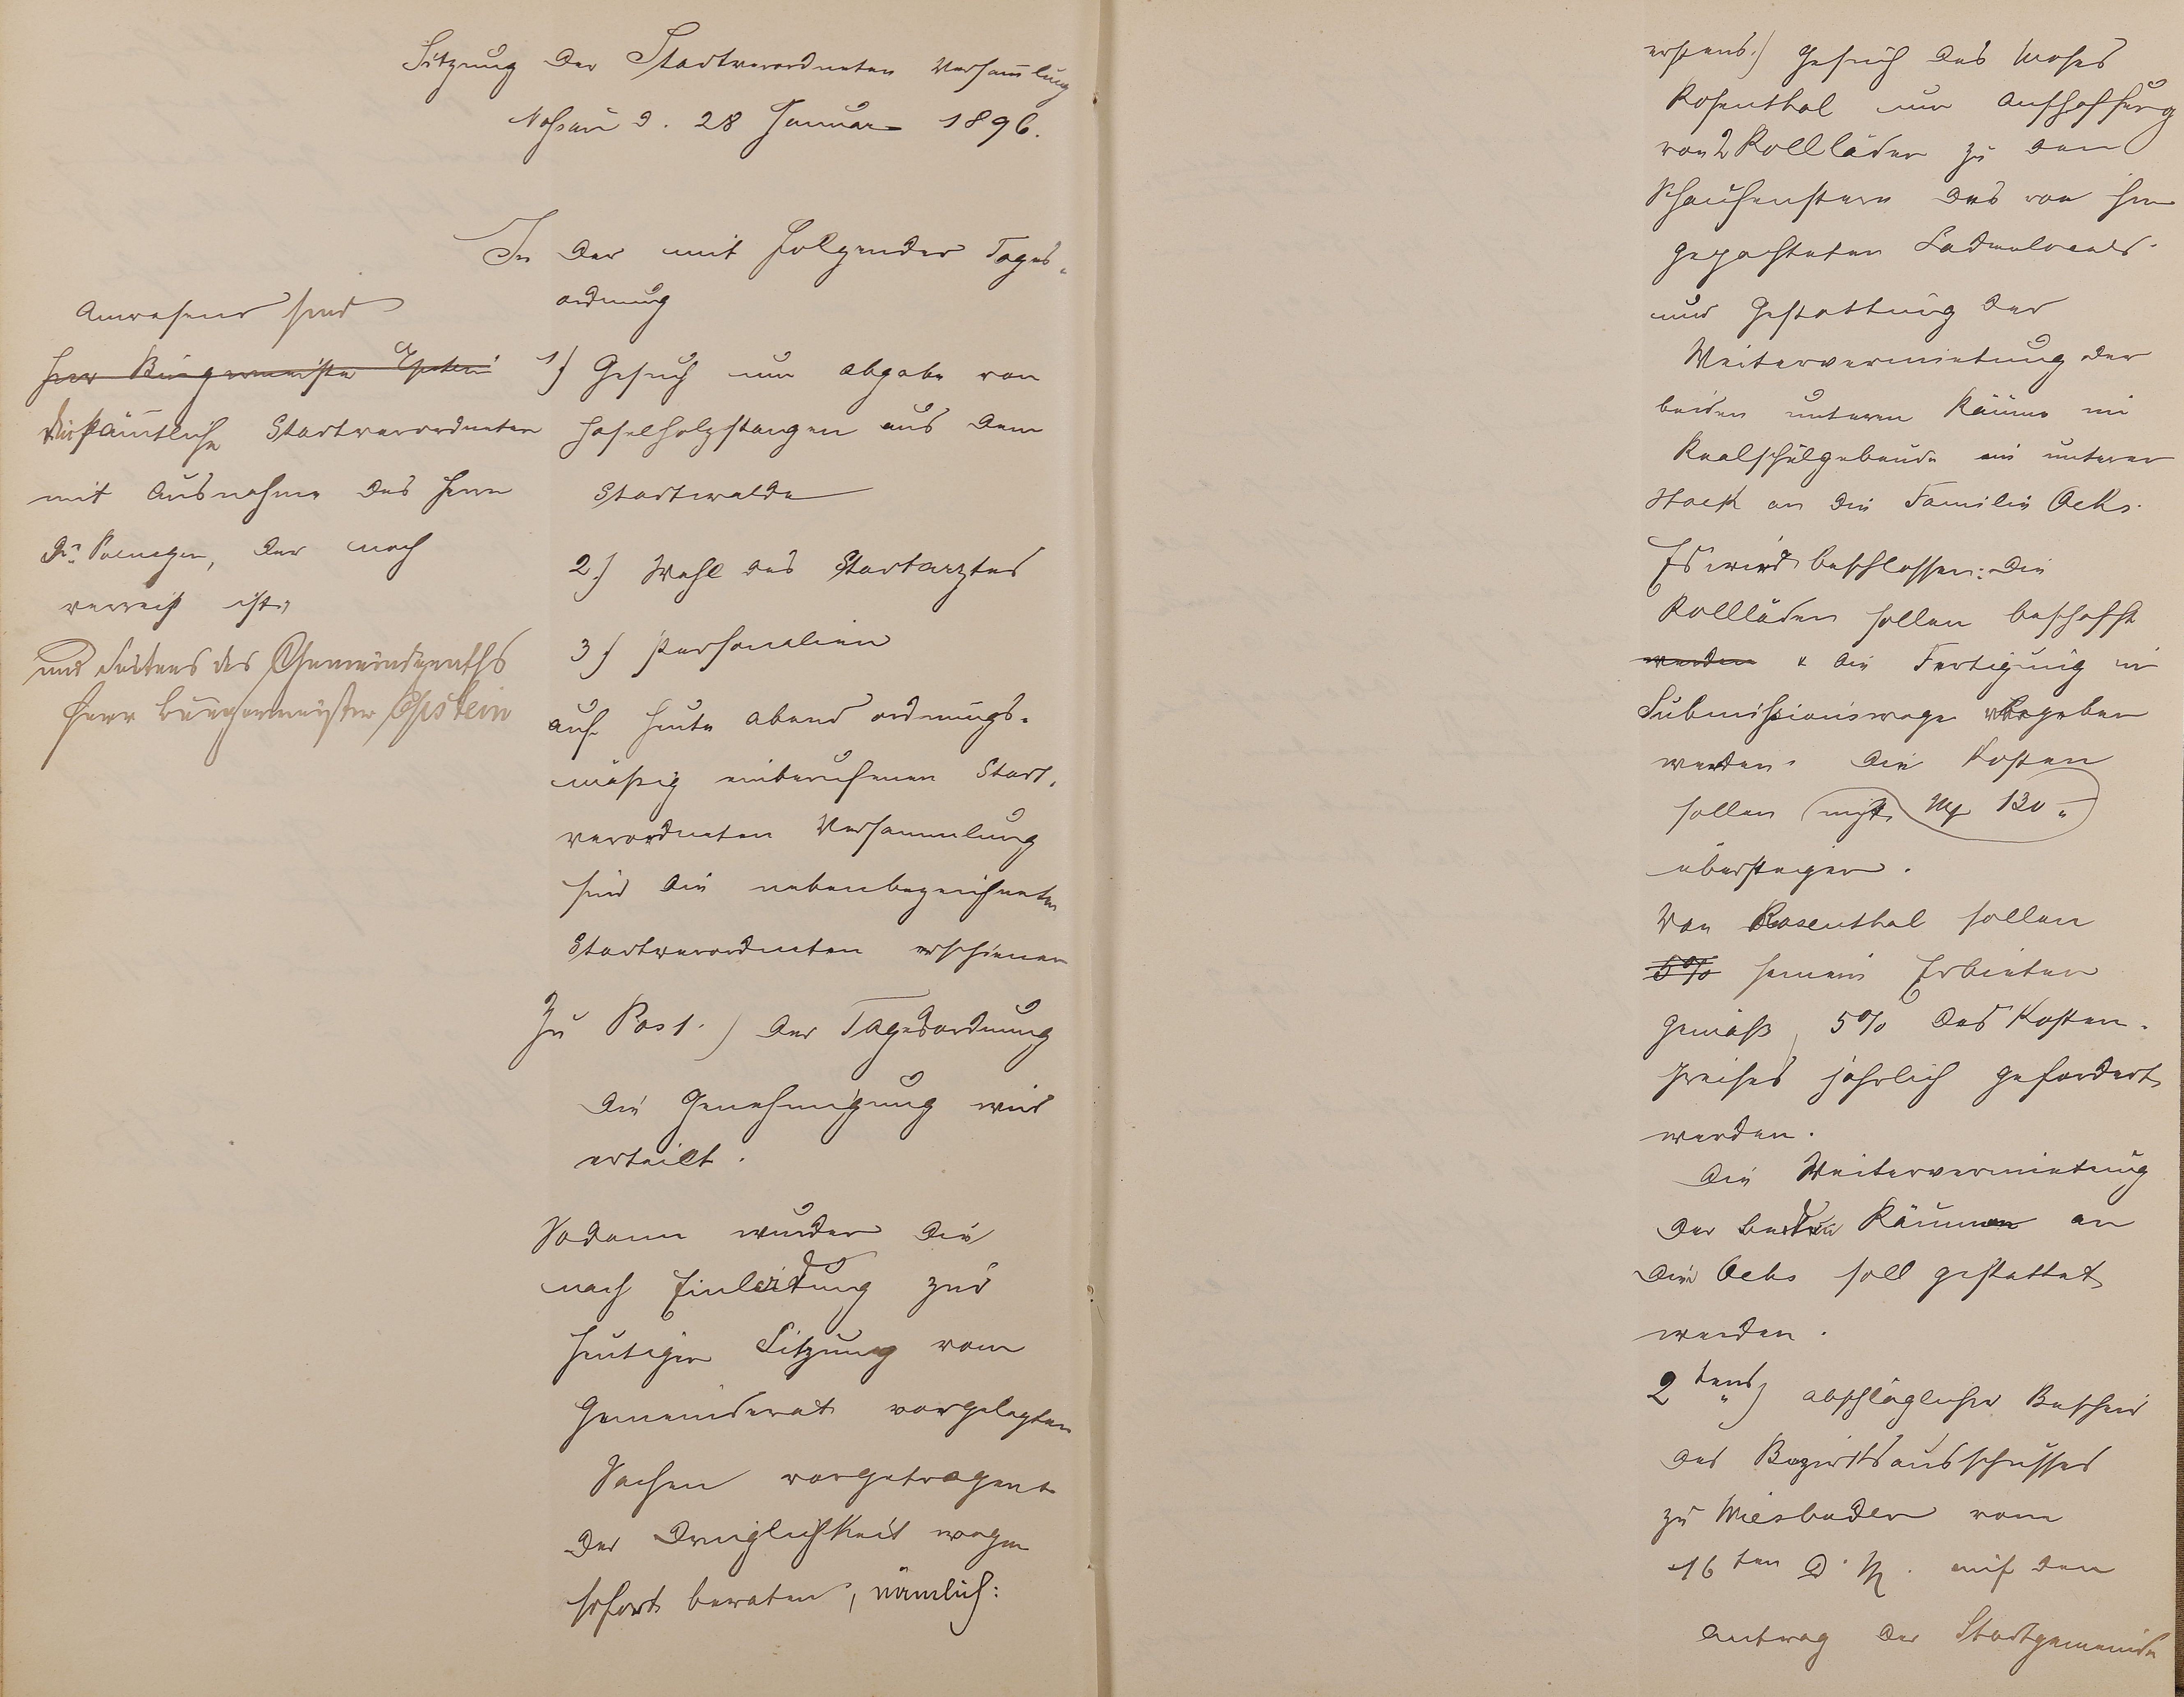 Sitzung der Stadtverordneten Versam̅lung
Nassau d. 28 Januar 1896.
Anwesend sind
Herr Bürgermeister Epstein
die sämtliche Stadtverordneten
mit Ausnahme des Herrn
Dr. Poensgen, der noch
verreist ist,
und Seitens des Gemeinderaths
Herr Bürgermeister Epstein
In der mit folgender Tages-
ordnung
1) Gesuch um Abgabe von
Haselholzstangen aus dem
Stadtwalde
2.) Wahl des Stadtarztes
3.) Personalien
auf heute Abend ordnungs-
mäßig einberufenen Stadt-
verordneten Versammlung
sind die nebenbezeichneten
Stadtverordneten erschienen
Zu Pos 1.) der Tagesordnung
Die Genehmigung wird
erteilt.
Sodann wurden die
nach Einleitung zur
heutigen Sitzung vom
Gemeinderat vorgelegten
Sachen vorgetragen &
der Dringlichkeit wegen
sofort beraten, nämlich:
erstens.) Gesuch des Moses
Rosenthal um Anschaffung
von 2 Rollläden zu den
Schaufenstern des von ihm
gepachteten Ladenlocals
und Gestattung der
Weitervermietung der
beiden unteren Räume im
Realschulgebäude im unteren
Stock an die Familie Ochs.
Es wird beschlossen: Die
Rollläden sollen beschafft
werden & die Fertigung im
Submissionswege vergeben
werden. Die Kosten
sollen nicht M 130 -
übersteigen.
Von Rosenthal sollen
5% seinem Erbieten
gemäß, 5% des Kosten-
preises jährlich gefordert
werden.
Die Weitervermietung
der beiden Räumen an
die Ochs soll gestattet
werden.
2tens) abschläglicher Bescheid
des Bezirksausschusses
zu Wiesbaden vom
16ten d. M. auf den
Antrag der Stadtgemeinde